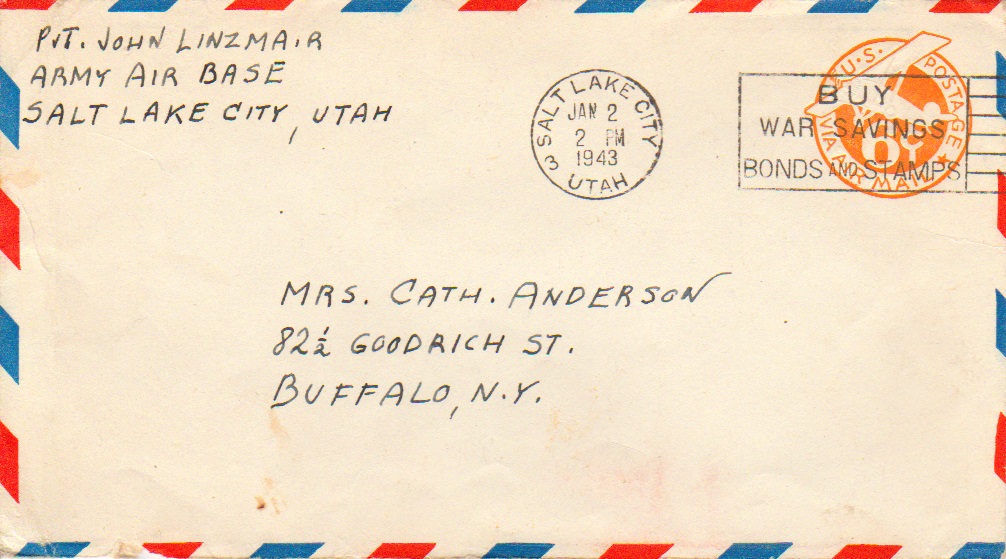 PVT. JOHN LINZMAIR
ARMY AIR BASE
SALT LAKE CITY, UTAH
SALT LAKE CITY
JAN 2
2 PM
1943
3 UTAH
BUY
WAR SAVINGS
BONDS AND STAMPS
U.S. POSTAGE
6¢
VIA AIR MAIL
MRS. CATH. ANDERSON
82½ GOODRICH ST.
BUFFALO, N.Y.